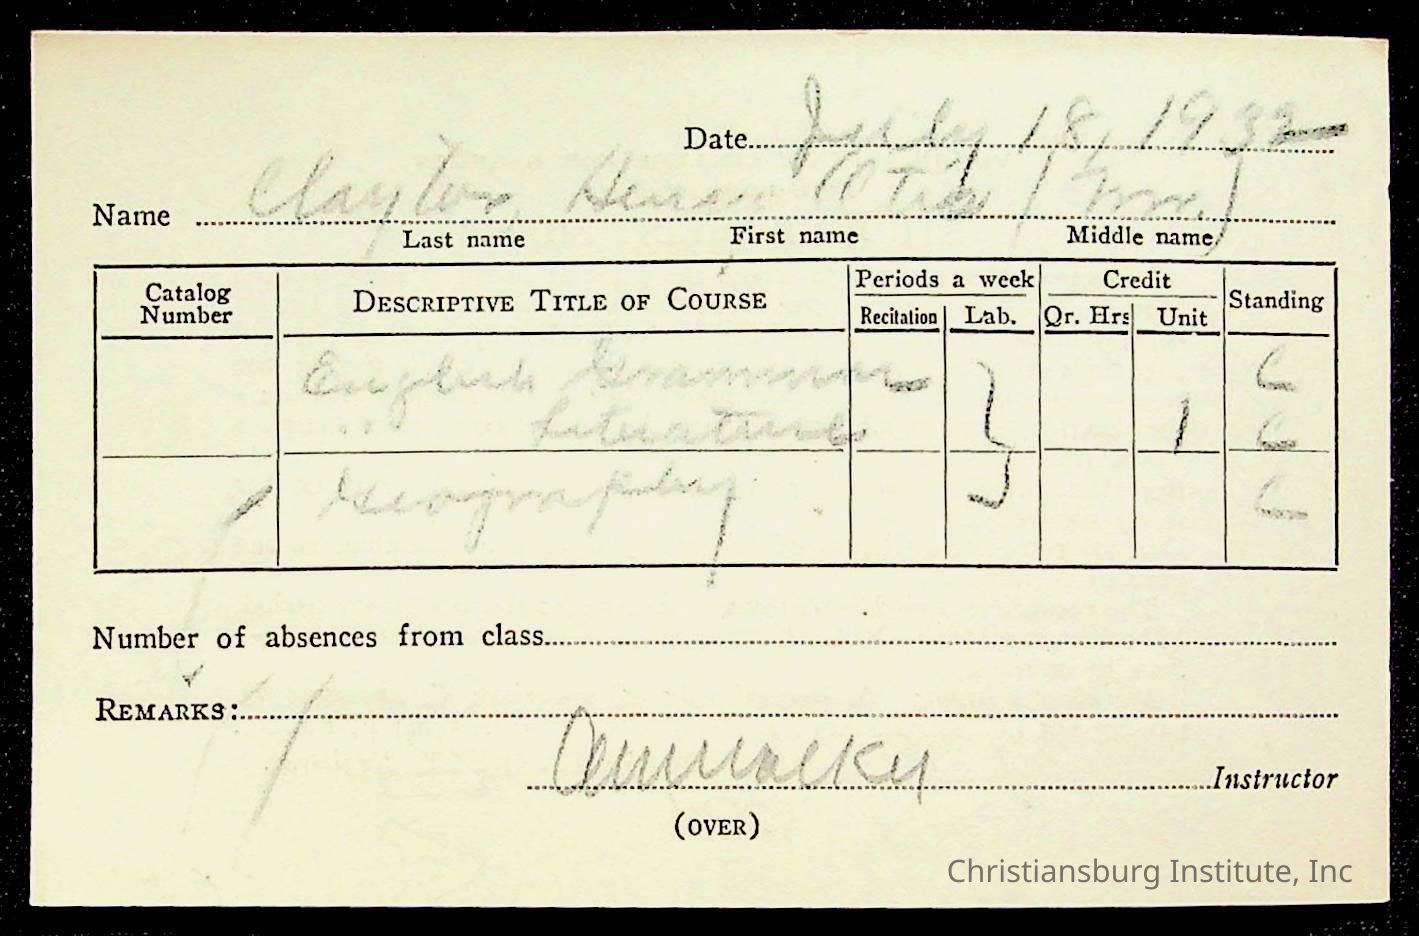 Date July 18, 1932
Name Clayton,
Last name First name Middle name
Catalog Number DESCRIPTIVE TITLE OF COURSE Periods a week Credit Standing
Recitation Lab. Qr. Hrs Unit
English Grammar C
" Literature 1 C
Geography C
Number of absences from class
REMARKS:
Instructor
(OVER)
Christiansburg Institute, Inc